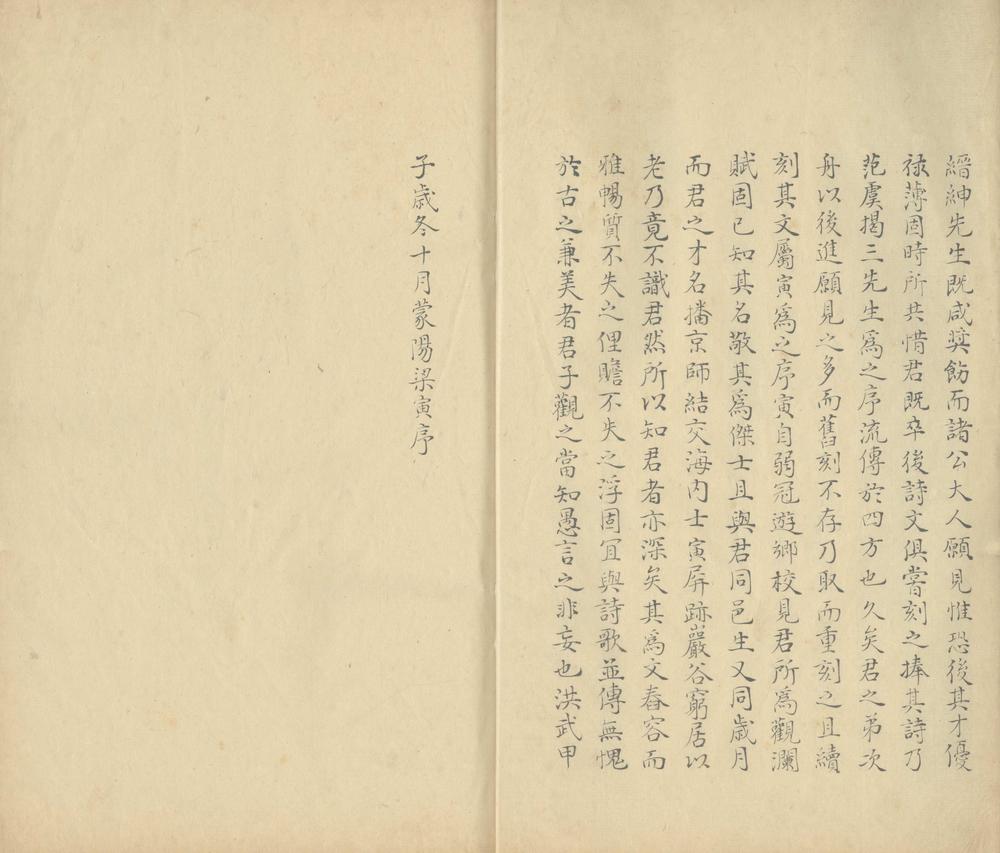 縉紳先生既咸奬飭而諸公大人願見惟恐後其才優
祿薄固時所共惜君既卒後詩文俱嘗刻之捧其詩乃
范虞揭三先生爲之序流傳於四方也久矣君之弟次
舟以後進願見之多而舊刻不存乃取而重刻之且續
刻其文屬寅爲之序寅自弱冠遊鄉校見君所爲觀瀾
賦固已知其名敬其爲傑士且與君同邑生又同歲月
而君之才名播京師結交海内士寅屏跡巖谷窮居以
老乃竟不識君然所以知君者亦深矣其爲文舂容而
雅暢質不失之俚贍不失之浮固冝與詩歌並傳無愧
於古之兼美者君子觀之當知愚言之非妄也洪武甲
子歲冬十月蒙陽梁寅序